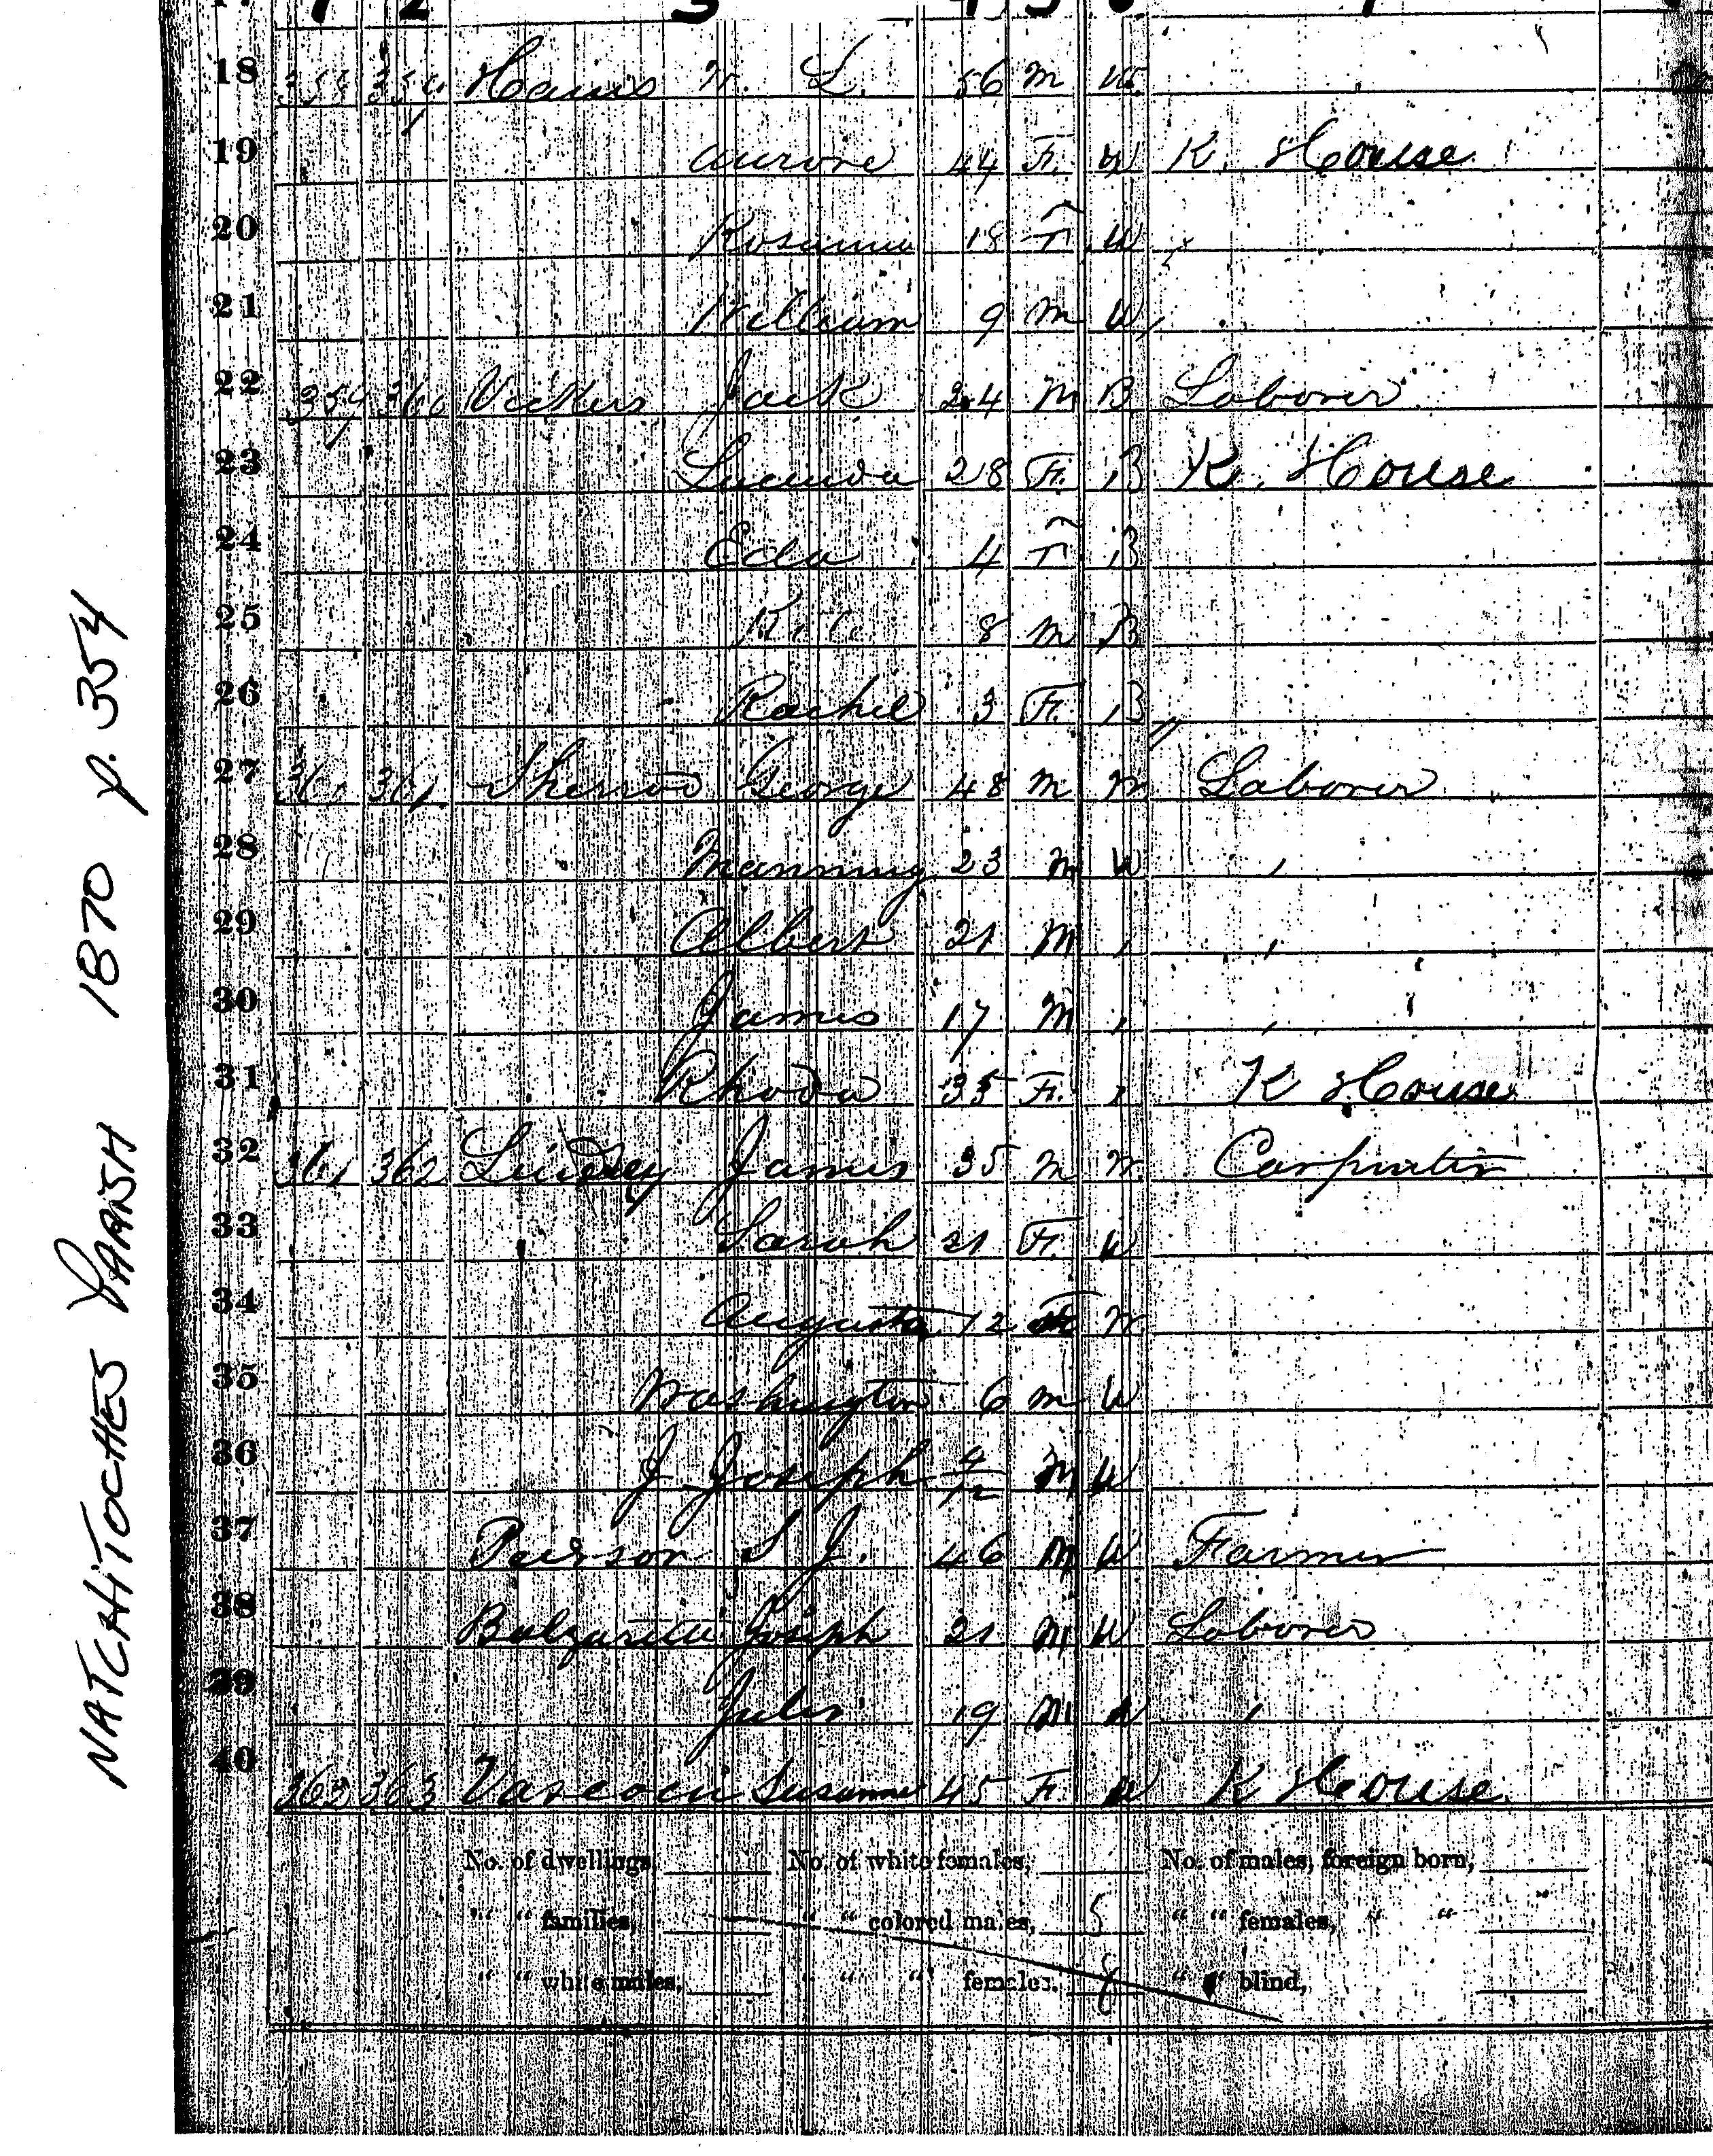 NATCHITOCHES PARISH 1870 p. 354
1 2 3 4 5 6 7
18 358 359 Harris W. L. 56 M W
19 Aurore 44 F. W K. House
20 Rosanna 18 F W
21 William 9 M W
22 359 360 Vickers Jack 24 M B Laborer
23 Lucinda 28 F. B K. House
24 Eda 4 F B
25 8 M B
26 Rachel 3 F. B
27 361 Sherrod George 48 M W Laborer
28 Manning 23 M W ,
29 Albert 21 M , ,
30 James 17 M , ,
31 Rhoda 35 F. , K House
32 361 362 Lindsey James 35 M W. Carpenter
33 Sarah 21 F. W
34 Augusta 12 F W.
35 Washington 6 M W
36 J Joseph 9/12 M W
37 Peirson S J. 46 M W Farmer
38 Joseph 21 M W Laborer
39 Jules 19 M W ,
40 362 363 Vascocu Susanne 45 F. W K House
No. of dwellings, No. of white females, No. of males, foreign born,
" " families, " " colored males, 5 " " females, " "
" " white males, " " " females, 8 " " blind,